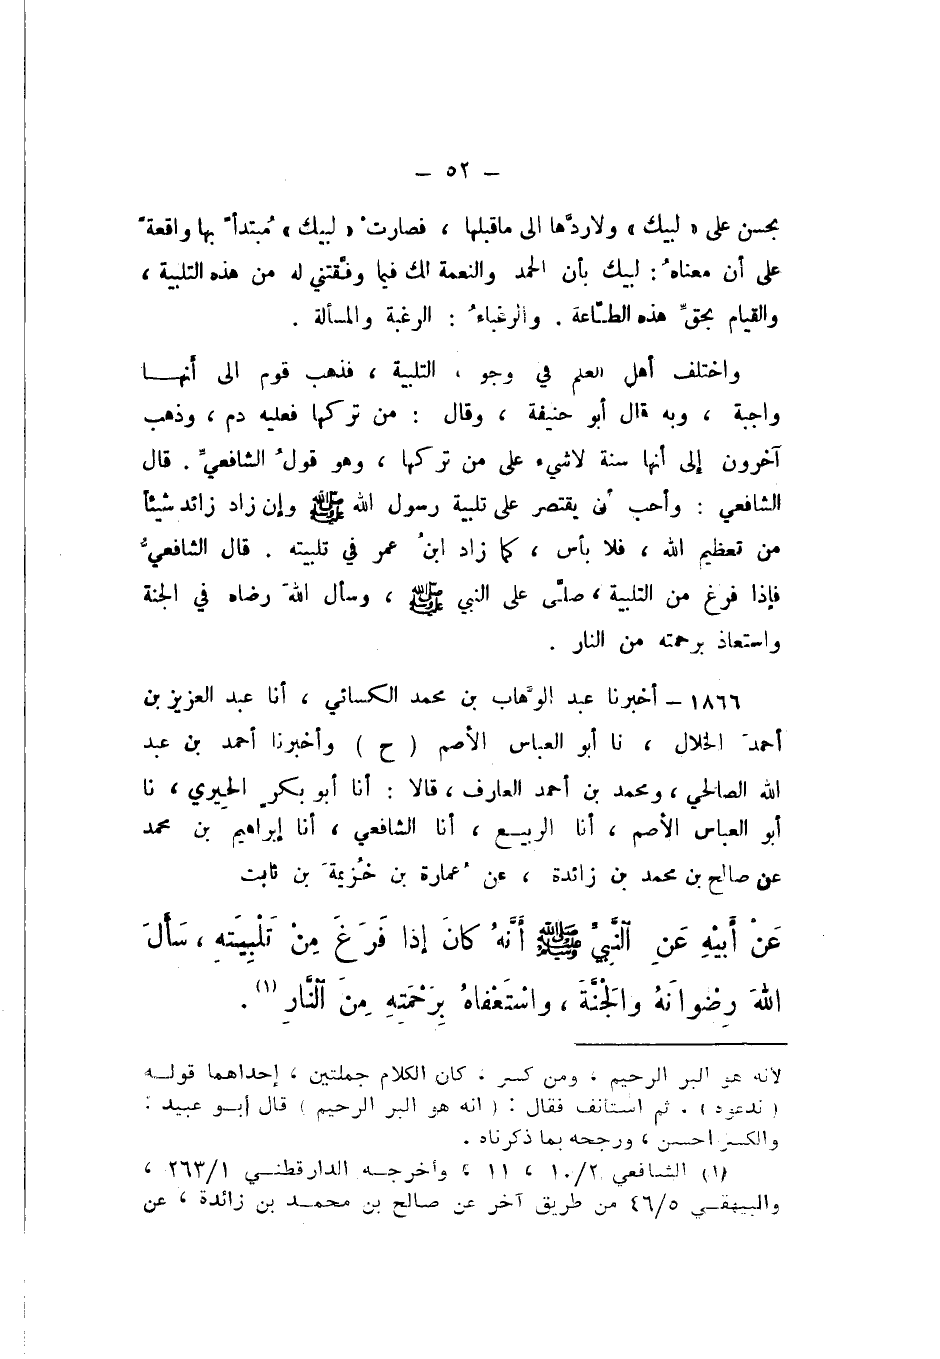 — ٥٢ —
بحسن على « لبيك » ولاردَّها الى ماقبلها ، فصارتْ « لبيك » مُبتدأً بها واقعةً
على أن معناهُ : لبيك بأن الحمد والنعمة لك فيما وفَّقتني له من هذه التلبية ،
والقيام بحقِّ هذه الطّاعة . والرغباءُ : الرغبة والمسألة .
واختلف أهل العلم في وجو ، التلبية ، فذهب قوم الى أنهـــا
واجبة ، وبه قال أبو حنيفة ، وقال : من تركها فعليه دم ، وذهب
آخرون إلى أنها سنة لاشيء على من تركها ، وهو قولُ الشافعيِّ . قال
الشافعي : وأحب أن يقتصر على تلبية رسول الله ﷺ وإن زاد زائد شيئاً
من تعظيم الله ، فلا بأس ، كما زاد ابنُ عمر في تلبيته . قال الشافعيُّ
فإذا فرغ من التلبية ، صلَّى على النبي ﷺ ، وسأل اللهَ رضاه في الجنة
واستعاذ برحمته من النار .
١٨٦٦ – أخبرنا عبد الوهَّاب بن محمد الكسائي ، أنا عبد العزيز بن
أحمدَ الخلال ، نا أبو العباس الأصم ( ح ) وأخبرنا أحمد بن عبد
الله الصالحي ، ومحمد بن أحمد العارف ، قالا : أنا أبو بكرٍ الحيري ، نا
أبو العباس الأصم ، أنا الربيــع ، أنا الشافعي ، أنا إبراهيم بن محمد
عن صالح بن محمد بن زائدة ، عن عُمارة بن خُزيمةَ بن ثابت
عَنْ أَبِيْهِ عَنِ النَّبِيِّ ﷺ أَنَّهُ كَانَ إذا فَرَغَ مِنْ تَلْبِيَتِهِ ، سَأَلَ
اللهَ رِضْوانَهُ والجَنَّةَ ، واسْتَعْفاهُ بِرَحْمَتِهِ مِنَ النَّارِ (١) .
لانه هو البر الرحيم ، ومن كسر . كان الكلام جملتين ، إحداهما قولــه
( ندعوه ) . ثم استانف فقال : ( انه هو البر الرحيم ) قال أبــو عبيد :
والكسر احسن ، ورجحه بما ذكرناه .
(١) الشافعي ١٠/٢ ، ١١ ، وأخرجــه الدارقطنــي ٢٦٣/١ ،
والبيهقــي ٤٦/٥ من طريق آخر عن صالح بن محمــد بن زائدة ، عن